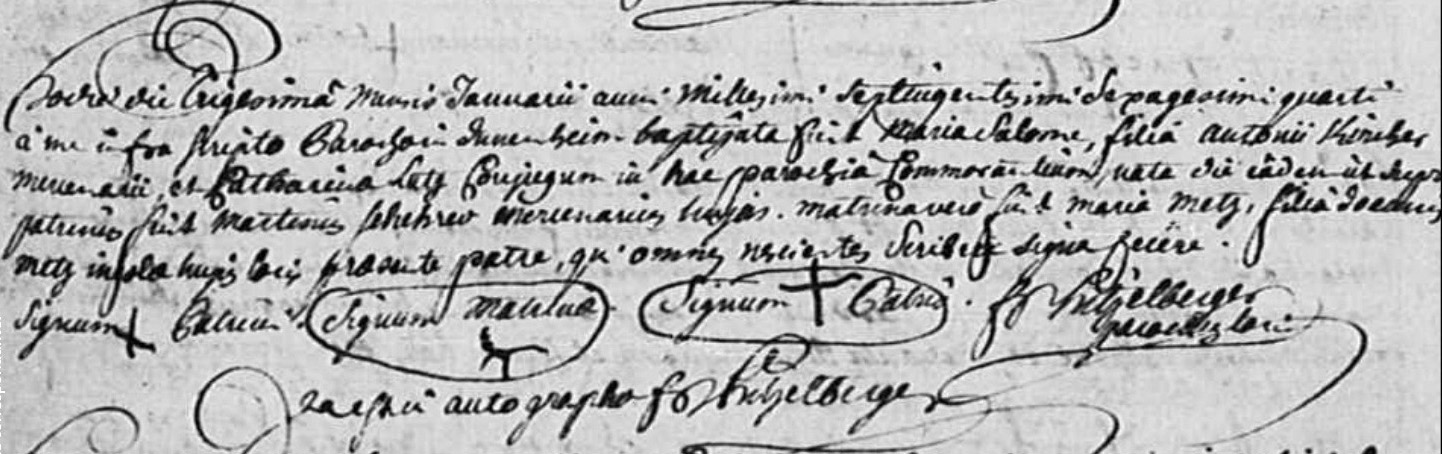 Hodie die Trigesimâ Mensis Januarii anni Millesimi Septingentesimi Sexagesimi quarti
à me infra scripto Parocho in Duneheim baptizata fuit Maria Salome, filia Antonii Kircher
mercenarii, et Catharina Lutz Conjugum in hac parochiâ Commorantium, nata die eâdem ut supra
patrinus fuit Martinus mercenarius hujas. matrina verò fuit Maria Metz, filia
Metz incola hujus loci, præsente patre, qui omnes nescientes Scribere signa fecere.
Signum Patrini. Signum Matrinæ. Signum Patris. parochus loci
autographo